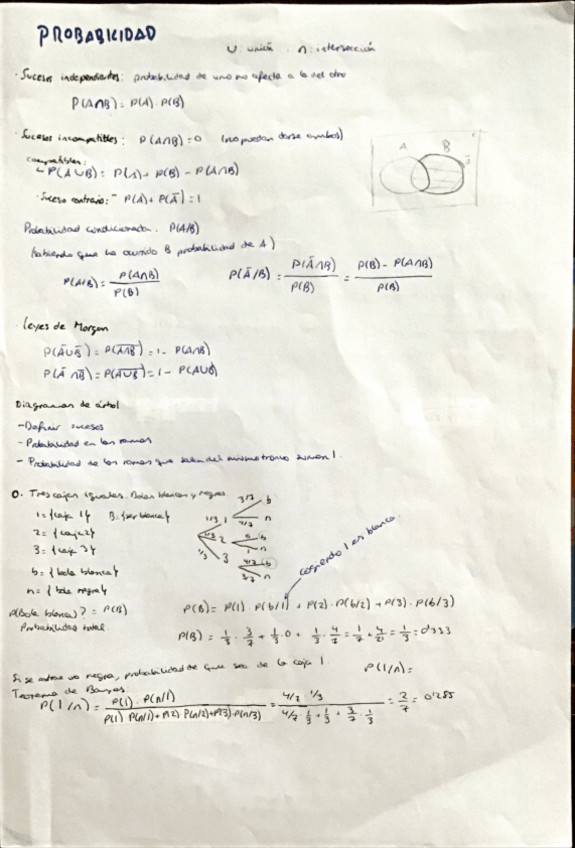 PROBABILIDAD
U: unión. ∩: intersección
· Sucesos independientes: probabilidad de uno no afecta a la del otro
P(A∩B) = P(A) · P(B)
· Sucesos incompatibles: P(A∩B) = 0 (no puedan darse ambos)
A B
compatibles:
↳ P(A∪B) = P(A) + P(B) - P(A∩B)
· Suceso contrario: P(A) + P(Ā) = 1
Probabilidad condicionada. P(A/B)
(sabiendo que ha ocurrido B probabilidad de A)
P(A/B) = P(A∩B) / P(B) P(Ā/B) = P(Ā∩B) / P(B) = P(B) - P(A∩B) / P(B)
· Leyes de Morgan
P(Ā∪B̄) = P(A∩B)‾ = 1 - P(A∩B)
P(Ā∩B̄) = P(A∪B)‾ = 1 - P(A∪B)
Diagramas de árbol
- Definir sucesos
- Probabilidad en las ramas
- Probabilidad de las ramas que salen del mismo tronco suman 1.
0. Tres cajas iguales. Bolas blancas y negras
1 = {caja 1} B = {ser blanca}
2 = {caja 2}
3 = {caja 3}
b = {bola blanca}
n = {bola negra}
1/3 1 3/7 b
4/7 n
1/3 2 0 b
1 n
1/3 3 4/7 b
3/7 n
cogiendo 1 es blanca.
P(Bola blanca)? = P(B) P(B) = P(1) · P(b/1) + P(2) · P(b/2) + P(3) · P(b/3)
Probabilidad total.
P(B) = 1/3 · 3/7 + 1/3 · 0 + 1/3 · 4/7 = 1/7 + 4/21 = 1/3 = 0'333
Si se extrae una negra, probabilidad de que sea de la caja 1 P(1/n) =
Teorema de Bayes.
P(1/n) = P(1) · P(n/1) / P(1) · P(n/1) + P(2) · P(n/2) + P(3) · P(n/3) = 4/7 · 1/3 / 4/7 · 1/3 + 1/3 + 3/7 · 1/3 = 2/7 = 0'285